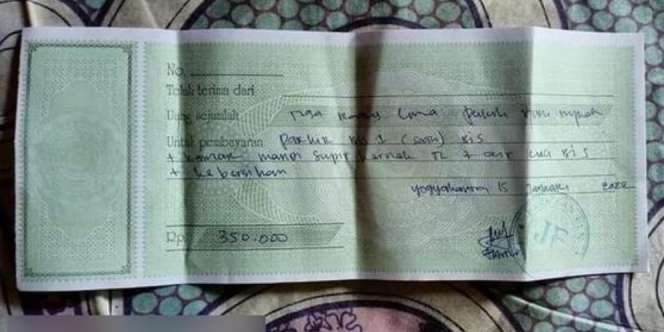 No.
Telah terima dari
Uang sejumlah Tiga Ratus Lima Puluh Ribu rupiah
Untuk pembayaran Parkir 1 (satu) Bis
+ kamar mandi supir + air cuci Bis
+ kebersihan
Yogyakarta 15 Januari 2022
Rp. 350.000